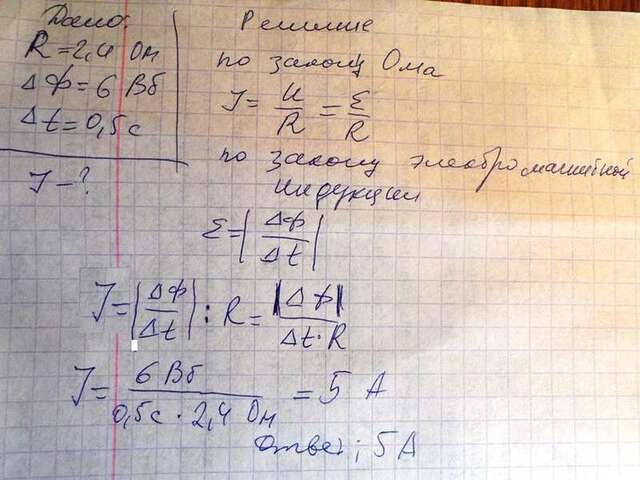 Дано:
R = 2,4 Ом
ΔФ = 6 Вб
Δt = 0,5 с
J - ?
Решение
по закону Ома
J = U/R = ε/R
по закону электромагнитной
индукции
ε = |ΔФ/Δt|
J = |ΔФ/Δt| : R = |ΔФ|/Δt·R
J = 6 Вб/0,5с · 2,4 Ом = 5 А
Ответ: 5А